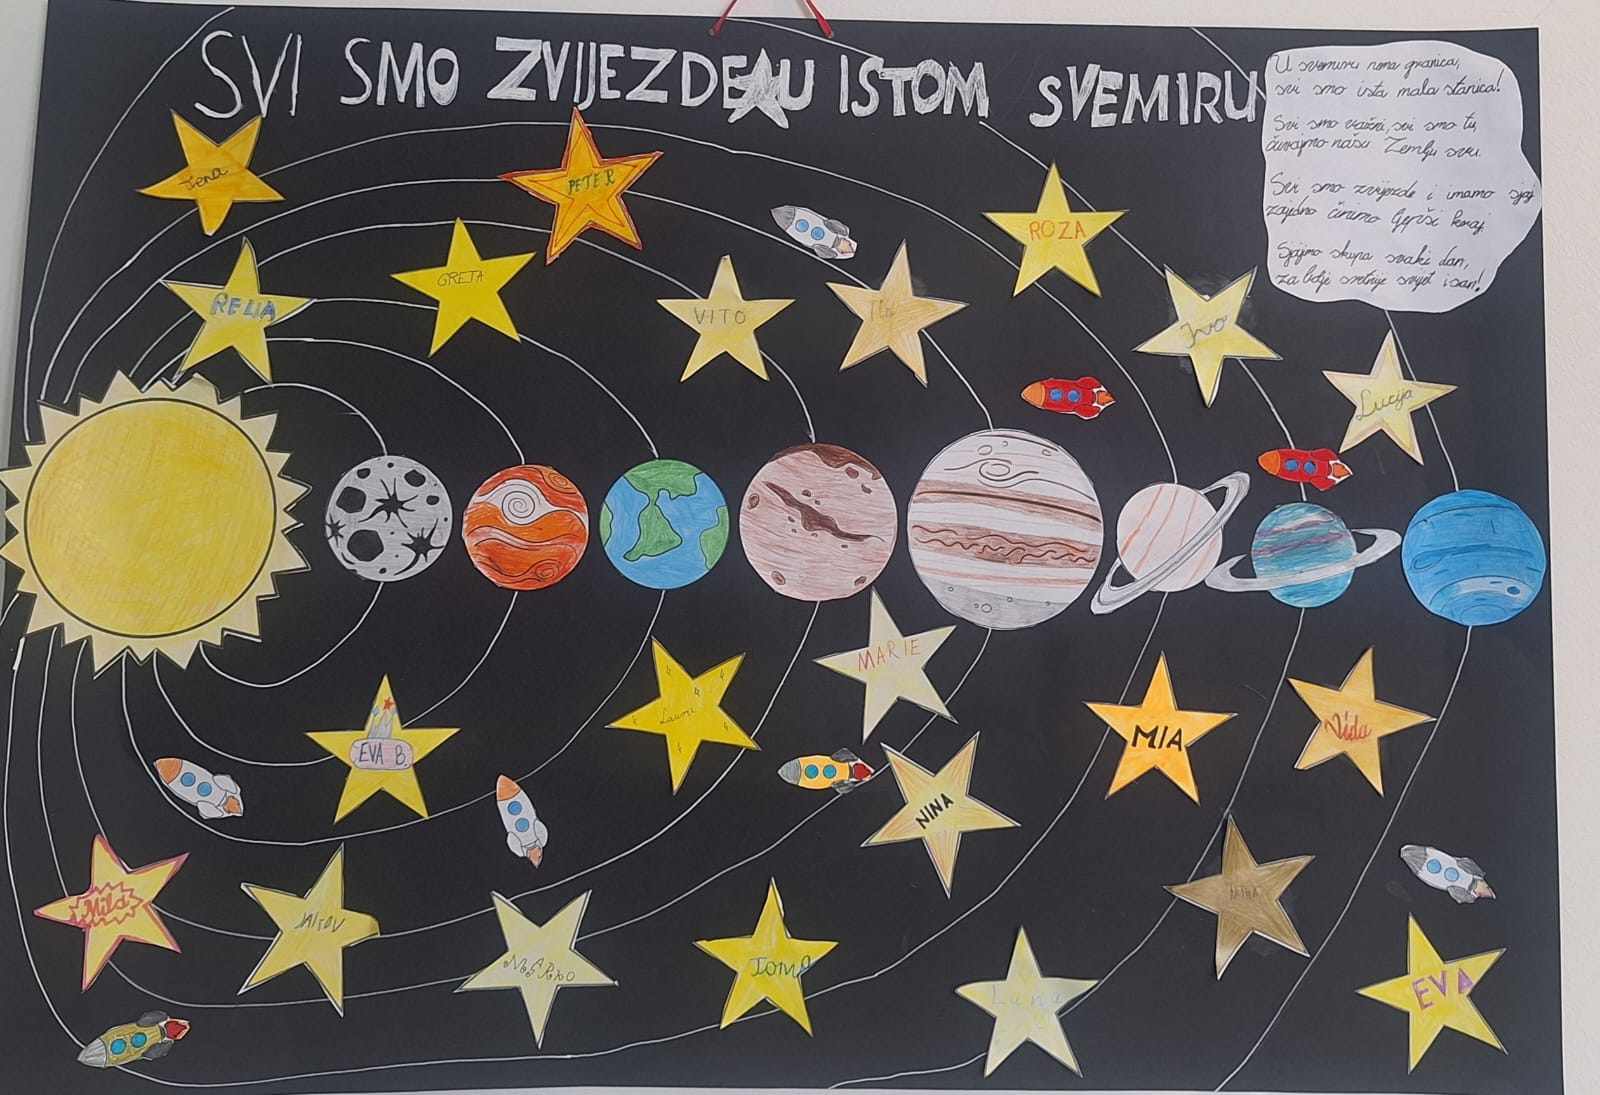 SVI SMO ZVIJEZDE U ISTOM SVEMIRU
U svemiru nema granica,
svi smo ista mala stanica!
Svi smo važni, svi smo tu,
čuvajmo našu Zemlju svu.
Svi smo zvijezde i imamo sjaj
zajedno činimo ljepši kraj.
Sjajimo skupa svaki dan,
za bolje sretnije svijet i san!
Jena
PETER
ROZA
RELJA
GRETA
VITO
Tin
Ivo
Lucija
MARIE
EVA B.
Lauri
MIA
Vida
NINA
Mila
JAKOV
MARKO
TOMA
Luna
MIHA
EVA